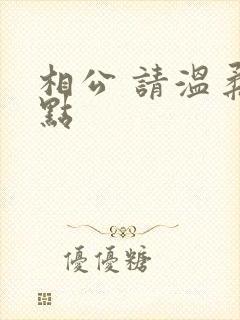 相公 請溫柔
點
優優糖